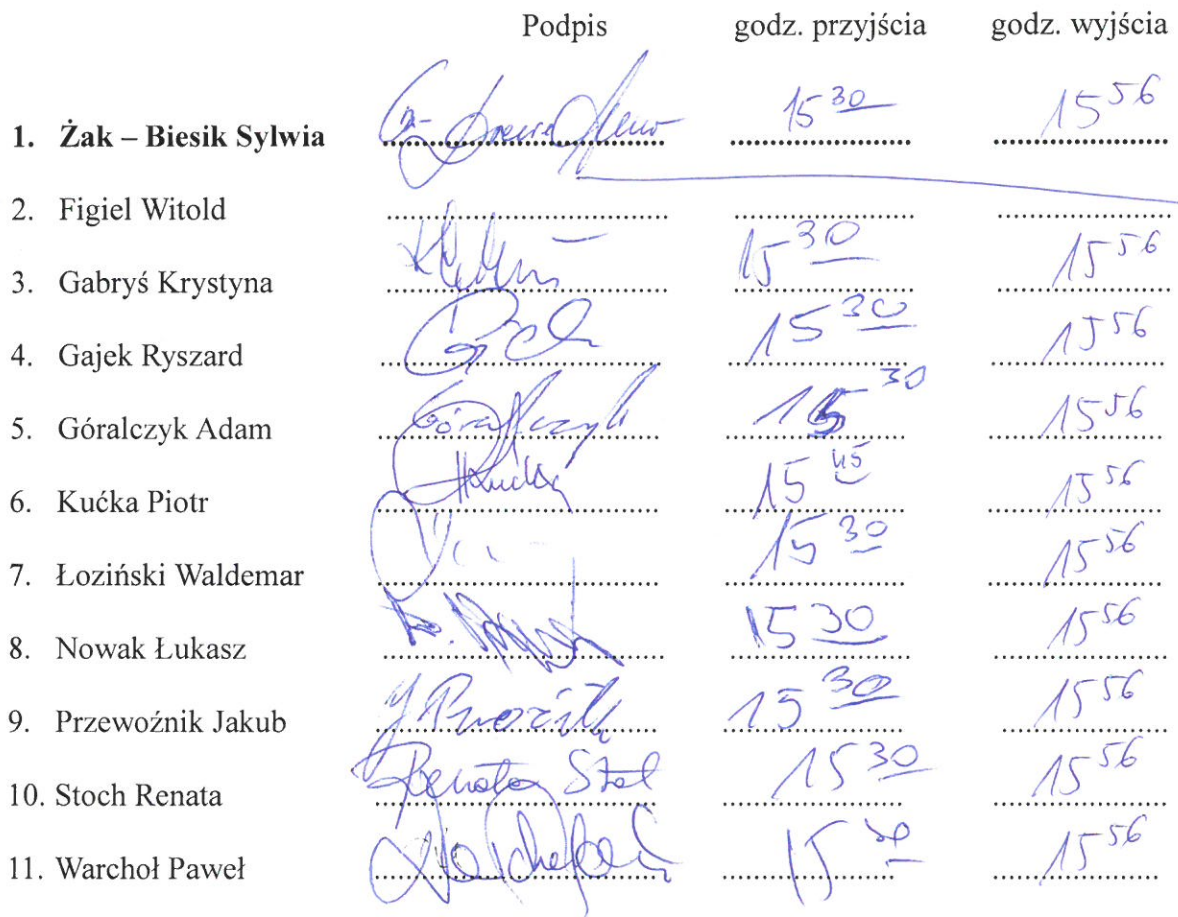 Podpis godz. przyjścia godz. wyjścia
1. Żak – Biesik Sylwia 15 30 15 56
2. Figiel Witold
3. Gabryś Krystyna 15 30 15 56
4. Gajek Ryszard 15 30 15 56
5. Góralczyk Adam Góralczyk 15 30 15 56
6. Kućka Piotr Kućka 15 45 15 56
7. Łoziński Waldemar 15 30 15 56
8. Nowak Łukasz 15 30 15 56
9. Przewoźnik Jakub 15 30 15 56
10. Stoch Renata Renata Stoch 15 30 15 56
11. Warchoł Paweł 15 30 15 56